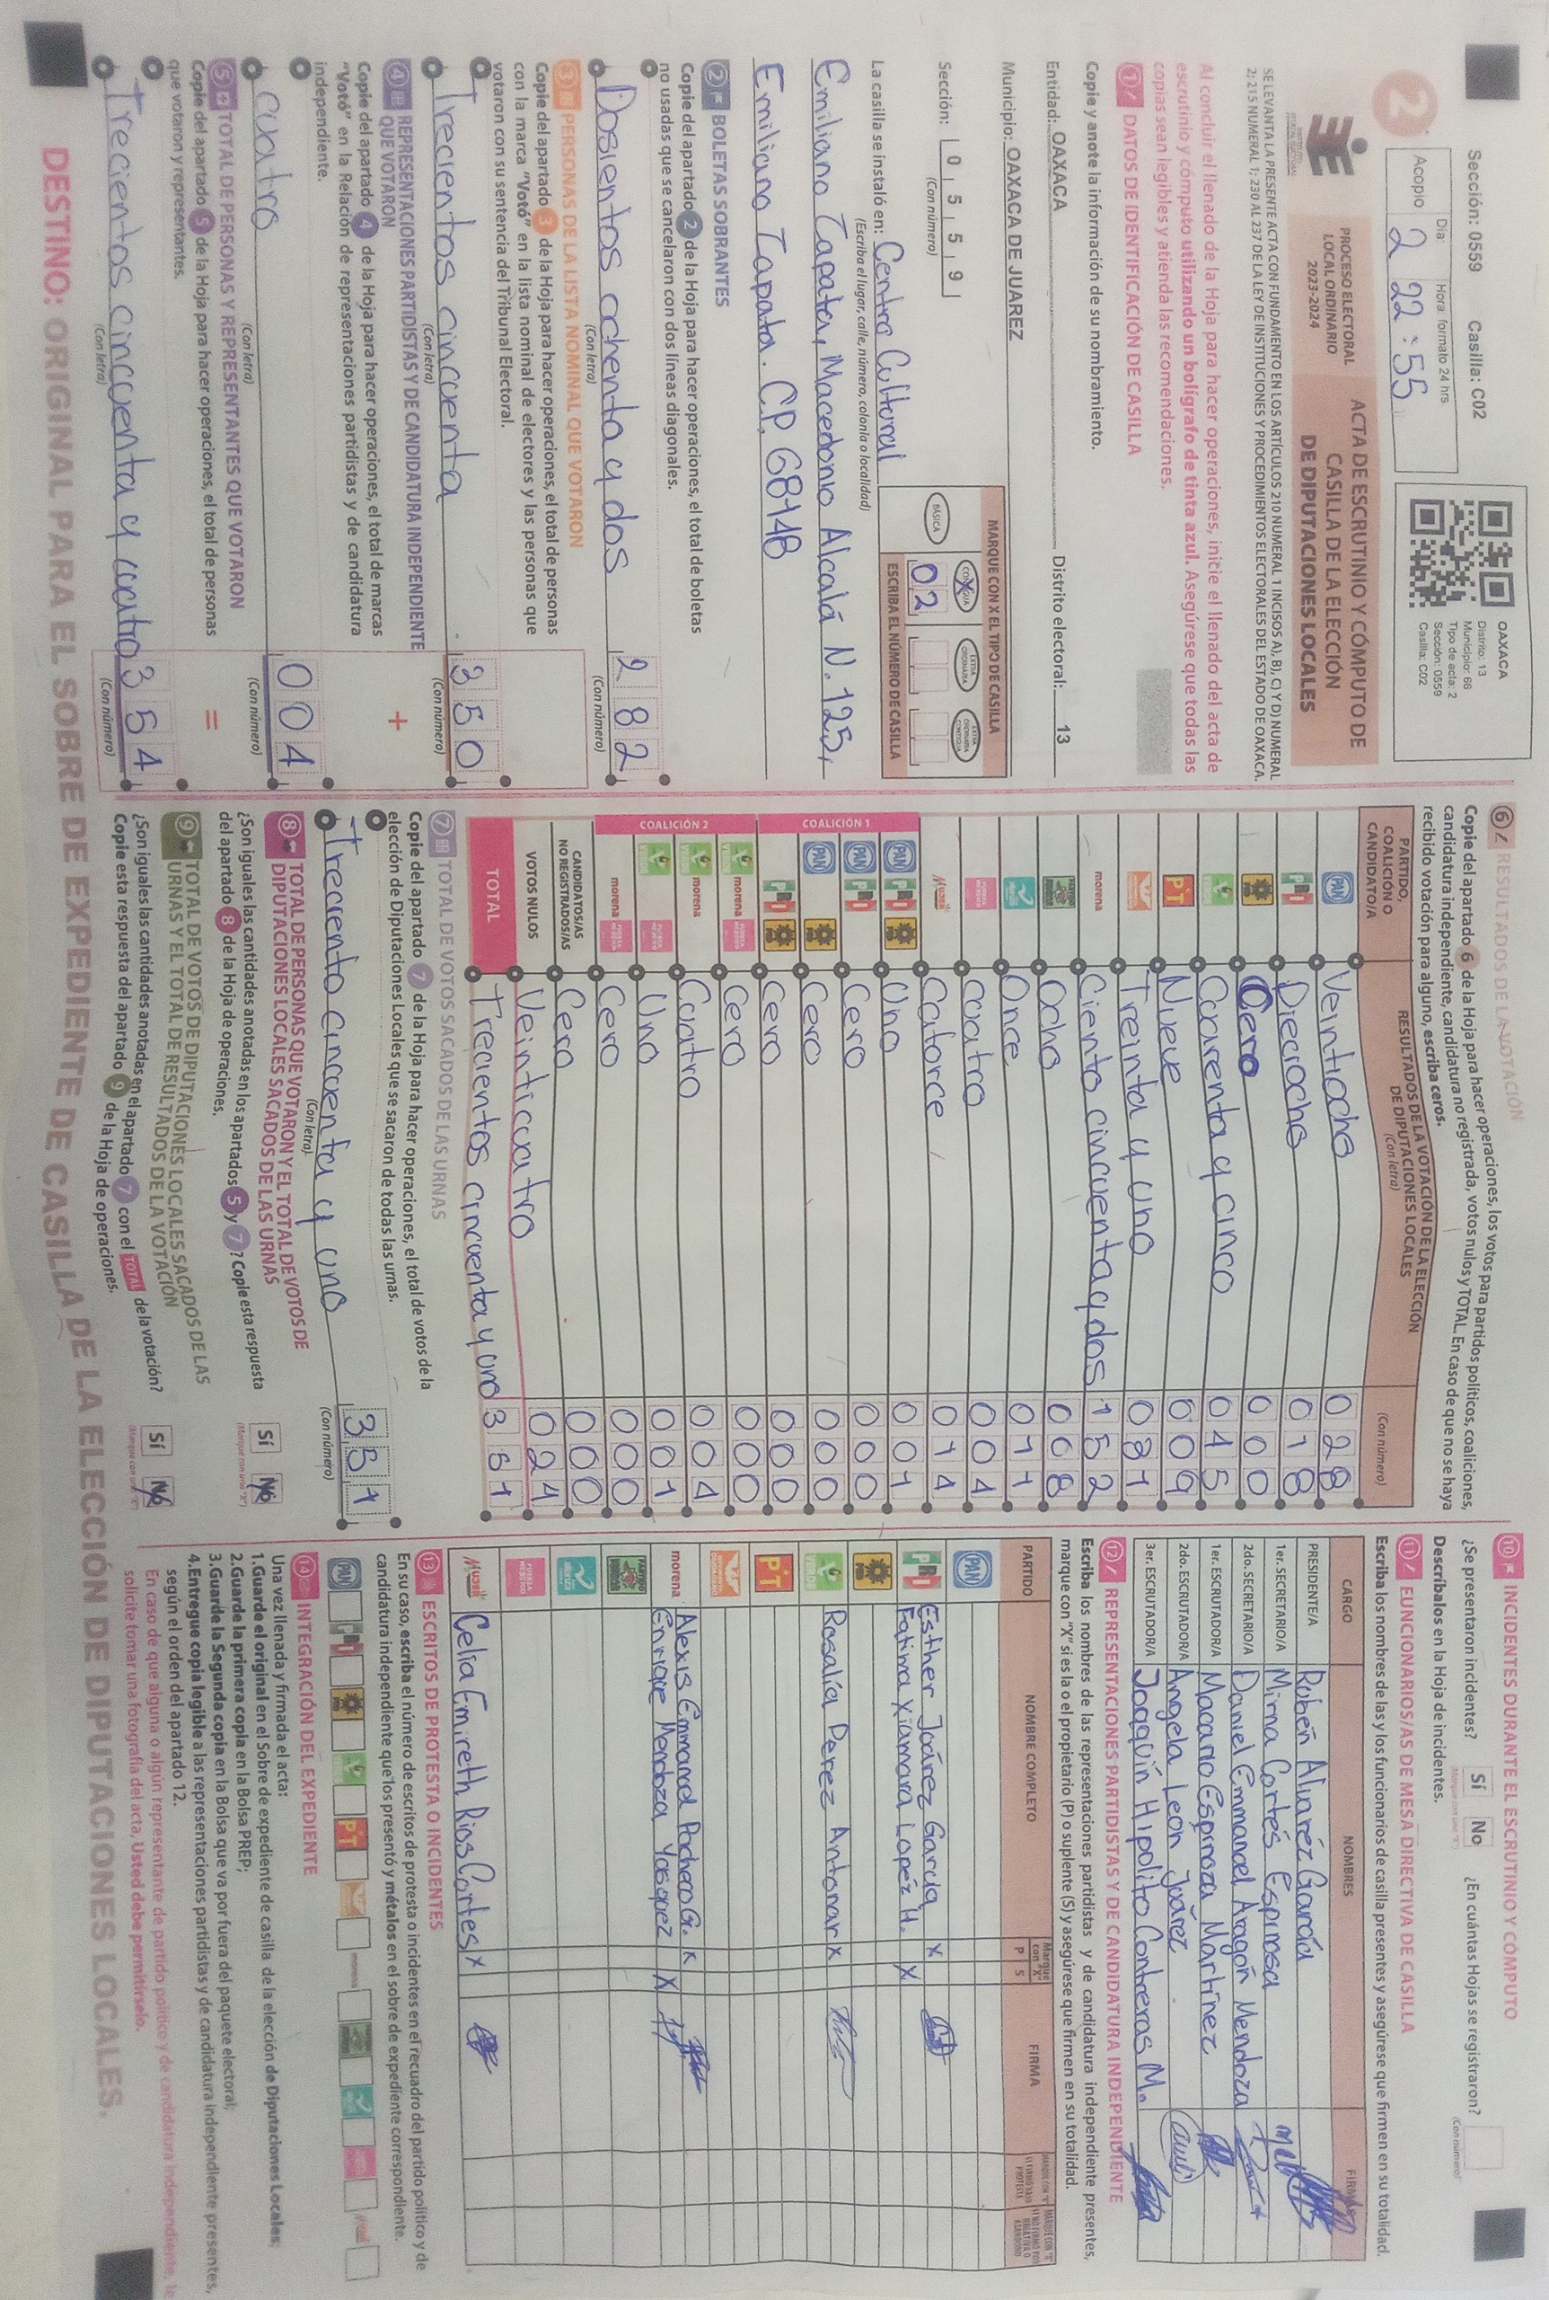 Sección: 0559 Casilla: C02
2
Acopio
Día: Hora: formato 24 hrs
2 22:55
OAXACA
Distrito: 13
Municipio: 66
Tipo de acta: 2
Sección: 0559
Casilla: C02
PROCESO ELECTORAL
LOCAL ORDINARIO
2023-2024
ACTA DE ESCRUTINIO Y CÓMPUTO DE
CASILLA DE LA ELECCIÓN
DE DIPUTACIONES LOCALES
SE LEVANTA LA PRESENTE ACTA CON FUNDAMENTO EN LOS ARTÍCULOS 210 NUMERAL 1 INCISOS A), B), C) Y D) NUMERAL
2; 215 NUMERAL 1; 230 AL 237 DE LA LEY DE INSTITUCIONES Y PROCEDIMIENTOS ELECTORALES DEL ESTADO DE OAXACA.
Al concluir el llenado de la Hoja para hacer operaciones, inicie el llenado del acta de
escrutinio y cómputo utilizando un bolígrafo de tinta azul. Asegúrese que todas las
copias sean legibles y atienda las recomendaciones.
1 DATOS DE IDENTIFICACIÓN DE CASILLA
Copie y anote la información de su nombramiento.
Entidad: OAXACA Distrito electoral: 13
Municipio: OAXACA DE JUAREZ
Sección: 0 5 5 9
(Con número)
MARQUE CON X EL TIPO DE CASILLA
BÁSICA CONTIGUA EXTRAORDINARIA EXTRAORDINARIA CONTIGUA
X
02
ESCRIBA EL NÚMERO DE CASILLA
La casilla se instaló en: Centro Cultural
(Escriba el lugar, calle, número, colonia o localidad)
Emiliano Zapata, Macedonio Alcalá N. 125,
Emiliano Zapata. C.P. 68148
2 BOLETAS SOBRANTES
Copie del apartado 2 de la Hoja para hacer operaciones, el total de boletas
no usadas que se cancelaron con dos líneas diagonales.
Dosientos ochenta y dos 282
(Con letra) (Con número)
3 PERSONAS DE LA LISTA NOMINAL QUE VOTARON
Copie del apartado 3 de la Hoja para hacer operaciones, el total de personas
con la marca "Votó" en la lista nominal de electores y las personas que
votaron con su sentencia del Tribunal Electoral.
Trecientos cincuenta 350
(Con letra) (Con número)
4 REPRESENTACIONES PARTIDISTAS Y DE CANDIDATURA INDEPENDIENTE
QUE VOTARON
Copie del apartado 4 de la Hoja para hacer operaciones, el total de marcas
"Votó" en la Relación de representaciones partidistas y de candidatura
independiente.
+
cuatro 004
(Con letra) (Con número)
5 TOTAL DE PERSONAS Y REPRESENTANTES QUE VOTARON
Copie del apartado 5 de la Hoja para hacer operaciones, el total de personas
que votaron y representantes.
=
Trecientos cincuenta y cuatro 354
(Con letra) (Con número)
6 RESULTADOS DE LA VOTACIÓN
Copie del apartado 6 de la Hoja para hacer operaciones, los votos para partidos políticos, coaliciones,
candidatura independiente, candidatura no registrada, votos nulos y TOTAL. En caso de que no se haya
recibido votación para alguno, escriba ceros.
PARTIDO,
COALICIÓN O
CANDIDATO/A
RESULTADOS DE LA VOTACIÓN DE LA ELECCIÓN
DE DIPUTACIONES LOCALES
(Con letra)
(Con número)
PAN Veintiocho 028
PRI Dieciocho 018
PRD Cero 000
VERDE Cuarenta y cinco 045
PT Nueve 009
Treinta y uno 031
morena Ciento cincuenta y dos 152
Ocho 008
Once 011
cuatro 004
MUJER Catorce 014
COALICIÓN 1
PAN PRI PRD Uno 001
PAN PRI Cero 000
PAN PRD Cero 000
PRI PRD Cero 000
COALICIÓN 2
VERDE morena FUERZA MÉXICO Cero 000
VERDE morena Cuatro 004
VERDE FUERZA MÉXICO Uno 001
morena FUERZA MÉXICO Cero 000
CANDIDATOS/AS
NO REGISTRADOS/AS Cero 000
VOTOS NULOS Veinticuatro 024
TOTAL Trecientos cincuenta y uno 351
7 TOTAL DE VOTOS SACADOS DE LAS URNAS
Copie del apartado 7 de la Hoja para hacer operaciones, el total de votos de la
elección de Diputaciones Locales que se sacaron de todas las urnas.
Treciento cincuenta y uno 351
(Con letra) (Con número)
8 TOTAL DE PERSONAS QUE VOTARON Y EL TOTAL DE VOTOS DE
DIPUTACIONES LOCALES SACADOS DE LAS URNAS
¿Son iguales las cantidades anotadas en los apartados 5 y 7? Copie esta respuesta
del apartado 8 de la Hoja de operaciones.
Sí No
(Marque con una "X")
9 TOTAL DE VOTOS DE DIPUTACIONES LOCALES SACADOS DE LAS
URNAS Y EL TOTAL DE RESULTADOS DE LA VOTACIÓN
¿Son iguales las cantidades anotadas en el apartado 7 con el TOTAL de la votación?
Copie esta respuesta del apartado 9 de la Hoja de operaciones.
Sí No
(Marque con una "X")
10 INCIDENTES DURANTE EL ESCRUTINIO Y CÓMPUTO
¿Se presentaron incidentes? Sí No ¿En cuántas Hojas se registraron?
(Marque con una "X") (Con número)
Descríbalos en la Hoja de incidentes.
11 FUNCIONARIOS/AS DE MESA DIRECTIVA DE CASILLA
Escriba los nombres de las y los funcionarios de casilla presentes y asegúrese que firmen en su totalidad.
CARGO NOMBRES FIRMAS
PRESIDENTE/A Rubén Alvaréz García
1er. SECRETARIO/A Mirna Cortés Espinosa
2do. SECRETARIO/A Daniel Emmanuel Aragón Mendoza
1er. ESCRUTADOR/A Macario Espinoza Martínez
2do. ESCRUTADOR/A Angela Leon Juárez
3er. ESCRUTADOR/A Joaquín Hipolito Contreras M.
12 REPRESENTACIONES PARTIDISTAS Y DE CANDIDATURA INDEPENDIENTE
Escriba los nombres de las representaciones partidistas y de candidatura independiente presentes,
marque con "X" si es la o el propietario (P) o suplente (S) y asegúrese que firmen en su totalidad.
PARTIDO NOMBRE COMPLETO Marque con "X" P S FIRMA
PAN
PRI Esther Juárez García x
Fatima Xiomara Lopéz H. x
PRD
VERDE Rosalía Perez Antonar x
PT
morena Alexis Emmanuel Pacheco G. x
Enrique Mendoza Yasquez x
MUJER Celia Emireth Rios Cortes x
13 ESCRITOS DE PROTESTA O INCIDENTES
En su caso, escriba el número de escritos de protesta o incidentes en el recuadro del partido político y de
candidatura independiente que los presentó y métalos en el sobre de expediente correspondiente.
PAN PRI PRD VERDE PT morena
14 INTEGRACIÓN DEL EXPEDIENTE
Una vez llenada y firmada el acta:
1.Guarde el original en el Sobre de expediente de casilla de la elección de Diputaciones Locales;
2.Guarde la primera copia en la Bolsa PREP;
3.Guarde la Segunda copia en la Bolsa que va por fuera del paquete electoral;
4.Entregue copia legible a las representaciones partidistas y de candidatura independiente presentes,
según el orden del apartado 12.
En caso de que alguna o algún representante de partido político y de candidatura independiente, le
solicite tomar una fotografía del acta, Usted debe permitírselo.
DESTINO: ORIGINAL PARA EL SOBRE DE EXPEDIENTE DE CASILLA DE LA ELECCIÓN DE DIPUTACIONES LOCALES.